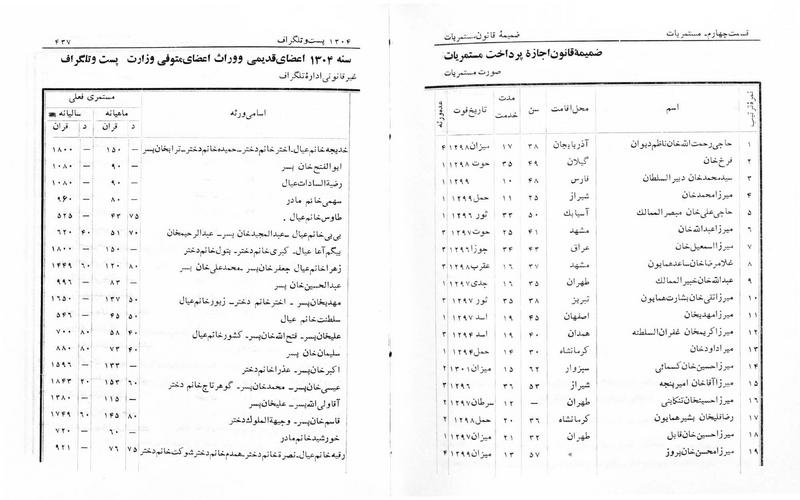 قسمت چهارم ـ مستمریات
ضمیمهٔ قانون مستمریات
ضمیمه قانون اجازهٔ پرداخت مستمریات
صورت مستمریات
نمرهٔ ترتیب اسم محل اقامت سن مدت خدمت تاریخ فوت عده ورثه
۱ حاجی رحمت الله خان ناظم دیوان آذربایجان ۳۸ ۱۷ میزان ۱۲۹۸ ۴
۲ فرخ خان گیلان ۴۹ ۳۵ حوت ۱۲۹۸ ۱
۳ سید محمد خان دبیر السلطان فارس ۴۸ ۱۰ ۱۲۹۹ ۱
۴ میرزا محمد خان شیراز ۲۵ ۱۱ حمل ۱۲۹۹ ۱
۵ حاجی علی خان مبصر الممالک آسیابک ۵۰ ۳۳ ثور ۱۲۹۶ ۱
۶ میرزا عبدالله خان مشهد ۴۱ ۲۵ حوت ۱۲۹۷ ۳
۷ میرزا اسمعیل خان عراق ۴۳ ۳۴ جوزا ۱۲۹۶ ۳
۸ غلامرضا خان ساعد همایون مشهد ۳۷ ۱۶ عقرب ۱۲۹۸ ۳
۹ عبدالله خان خبیر الممالک طهران ۳۵ ۱۶ جدی ۱۲۹۷ ۱
۱۰ میرزا تقی خان بشارت همایون تبریز ۳۸ ۳۵ ثور ۱۲۹۷ ۳
۱۱ میرزا مهدیخان اصفهان ۴۵ ۱۹ اسد ۱۲۹۷ ۱
۱۲ میرزا کریمخان غفران السلطنه همدان ۴۰ ۱۹ اسد ۱۲۹۷ ۳
۱۳ میر داود خان کرمانشاه ۳۰ ۱۴ حمل ۱۲۹۴ ۱
۱۴ میرزا حسین خان کسمائی سبزوار ۶۲ ۱۵ میزان ۱۳۰۱ ۲
۱۵ میرزا آقا خان امیر پنجه شیراز ۵۳ ۳۶ ۱۲۹۶ ۳
۱۶ میرزا حسینخان تنکابنی طهران — ۱۲ سرطان ۱۲۹۷ ۲
۱۷ رضا قلیخان بشیر همایون کرمانشاه ۳۶ ۲۰ حمل ۱۲۹۸ ۲
۱۸ میرزا حسین خان قابل طهران ۳۲ ۲۱ میزان ۱۲۹۷ ۱
۱۹ میرزا محسن خان پروز » ۵۷ ۱۳ میزان ۱۲۹۹ ۴
۱۳۰۴ پست و تلگراف
۴۳۷
سنه ۱۳۰۴ اعضای قدیمی و وراث اعضای متوفی وزارت پست و تلگراف
غیر قانونی ادارهٔ تلگراف
اسامی ورثه مستمری فعلی
ماهیانه سالیانه
د قران د قران
خدیجه خانم عیال ـ اختر خانم دختر ـ حمیده خانم دختر ـ ترابخان پسر — ۱۵۰ — ۱۸۰۰
ابوالفتح خان پسر — ۹۰ — ۱۰۸۰
رضیة السادات عیال — ۹۰ — ۱۰۸۰
سهمی خانم مادر — ۸۰ — ۹۶۰
طاوس خانم عیال . ۷۵ ۴۳ — ۵۲۵
بی بی خانم عیال ـ عبدالمجید خان پسر ـ عبدالرحیمخان ۷۰ ۵۱ ۴۰ ۶۲۰
بیگم آغا عیال ـ کبری خانم دختر ـ بتول خانم دختر — ۱۵۰ — ۱۸۰۰
زهرا خانم عیال جعفر خان پسر ـ محمد علی خان پسر ۸۰ ۱۲۰ ۶۰ ۱۴۴۹
عبدالحسین خان پسر — ۸۳ — ۹۹۶
مهدیخان پسر ـ اختر خانم دختر ـ زیور خانم عیال ۵۰ ۱۳۷ — ۱۶۵۰
سلطنت خانم عیال ۵۰ ۴۵ — ۵۴۶
علیخان پسر ـ فتح الله خان پسر ـ کشور خانم عیال ۴۰ ۵۸ ۸۰ ۷۰۰
سلیمان خان پسر ۴۰ ۷۳ ۸۰ ۸۸۰
اکبر خان پسر ـ عذرا خانم دختر — ۱۳۳ — ۱۵۹۶
عیسی خان پسر ـ محمد خان پسر ـ گوهر تاج خانم دختر ۶۰ ۱۵۳ ۲۰ ۱۸۴۳
آقا ولی الله پسر ـ علیخان پسر — ۱۱۵ — ۱۳۸۰
قاسم خان پسر ـ وجیهة الملوک دختر ۸۰ ۱۴۵ ۶۰ ۱۷۴۹
خورشید خانم مادر — ۶۰ — ۷۲۰
رقیه خانم عیال ـ نصرة خانم دختر ـ همدم خانم دختر شوکت خانم دختر ۷۵ ۷۶ — ۹۲۱